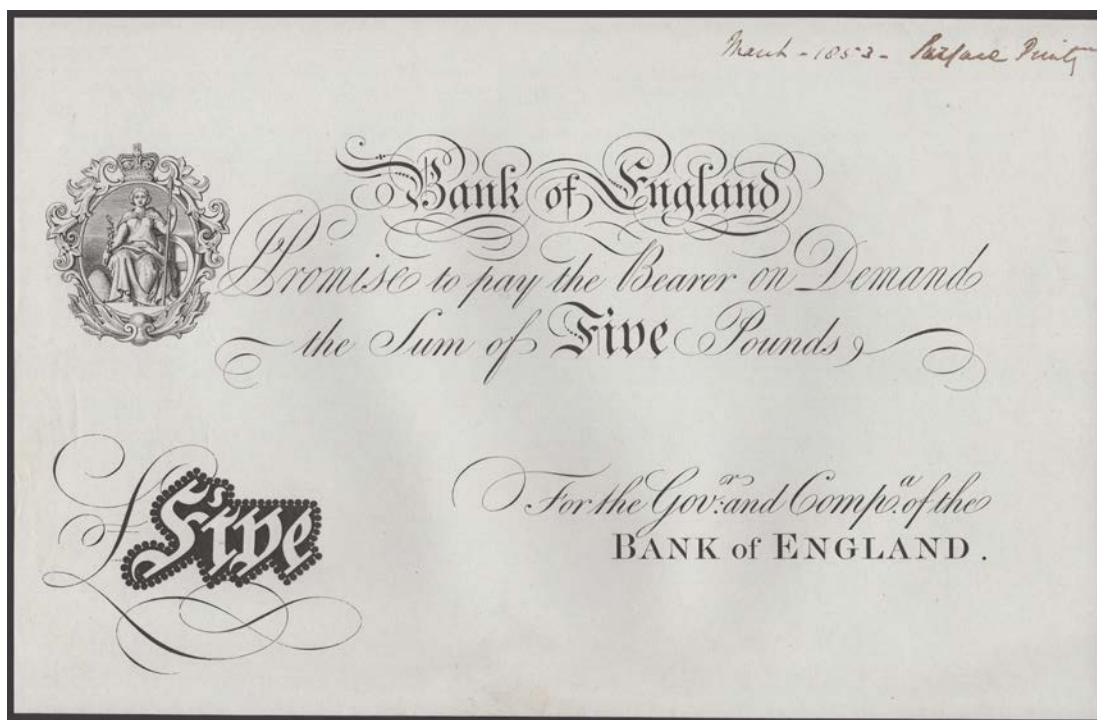 March - 1853 - Surface Printg
Bank of England
I Promise to pay the Bearer on Demand
the Sum of Five Pounds
£Five
For the Govr: and Compa. of the
BANK of ENGLAND.